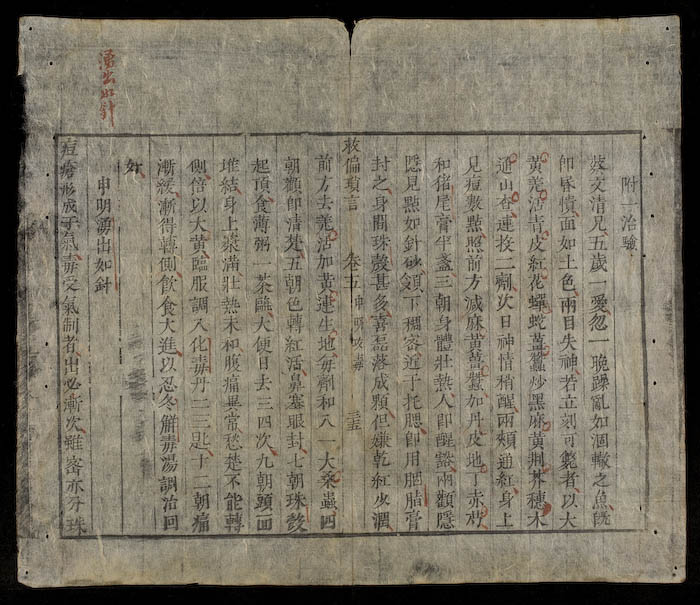 湧出如針
附一治驗
蔡文清兄五歲一愛忽一晚躁亂如涸轍之魚旣
即昏憒面如土色兩目失神若立刻可斃者以大
黃羗活青皮紅花蟬蛻薑蠶炒黑麻黃荆芥穗木
通山查連投二劑次日神情稍醒兩頰通紅身上
見痘數點照前方減麻黃薑蠶加丹皮地丁赤芍
和猪尾膏半盞三朝身體壯熱人即醒豁兩顴隱
隱見㸃如針砂頷下稠密近于托腮即用胭脂膏
封之身間珠殼甚多喜磊落成顆但嫌乾紅少潤
救偏瑣言 卷五 申明攻毒 三五
前方去羗活加黃連生地每劑和八一大桑蟲四
朝顴即清楚五朝色轉紅活鼻塞眼封七朝珠殼
起頂食薄粥一茶甌大便日去三四次九朝頭面
堆結身上漿滿壯熱未和腹痛異常愁楚不能轉
側倍以大黃臨服調入化毒丹二三匙十二朝痛
漸緩漸得轉側飲食大進以忍冬解毒湯調治回
好
申明湧出如針
痘瘡形成于氣毒受氣制者出必漸次雖密亦分珠